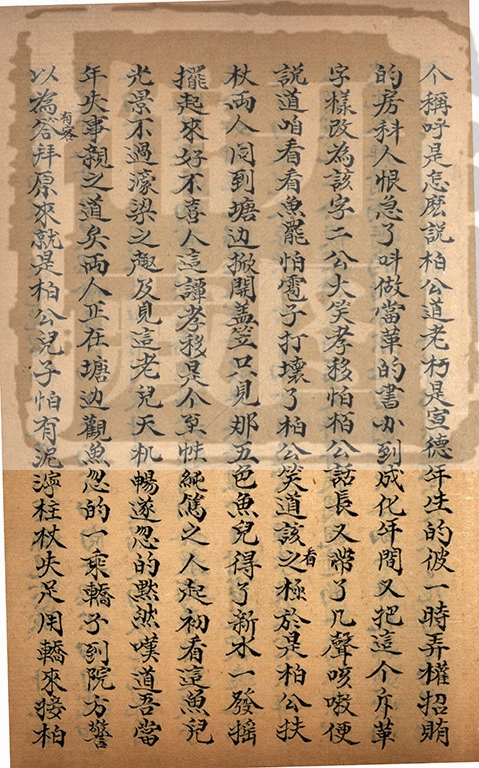 个稱呼是怎麽説柏公道老朽是宣德年生的彼一時弄權招賄
的房科人恨急了呌做當革的書办到成化年間又把這个斥革
字樣改為該字二公大笑孝移怕栢公話長又帶了几聲咳嗽便
説道咱看看魚罷怕雹子打壞了柏公笑道該看之極於是柏公扶
杖兩人同到塘边掀開盖笠只見那五色魚兒得了新水一發摇
擺起來好不喜人這譚孝移是个至性純篤之人起初看這魚兒
光景不過濠梁之趣及見這老兒天机暢遂忽的默然嘆道吾當
年失事親之道矣兩人正在塘边觀魚忽的一乘轎子到院方警
以為有客答拜原來就是柏公兒子怕有泥濘柱杖失足用轎來接柏